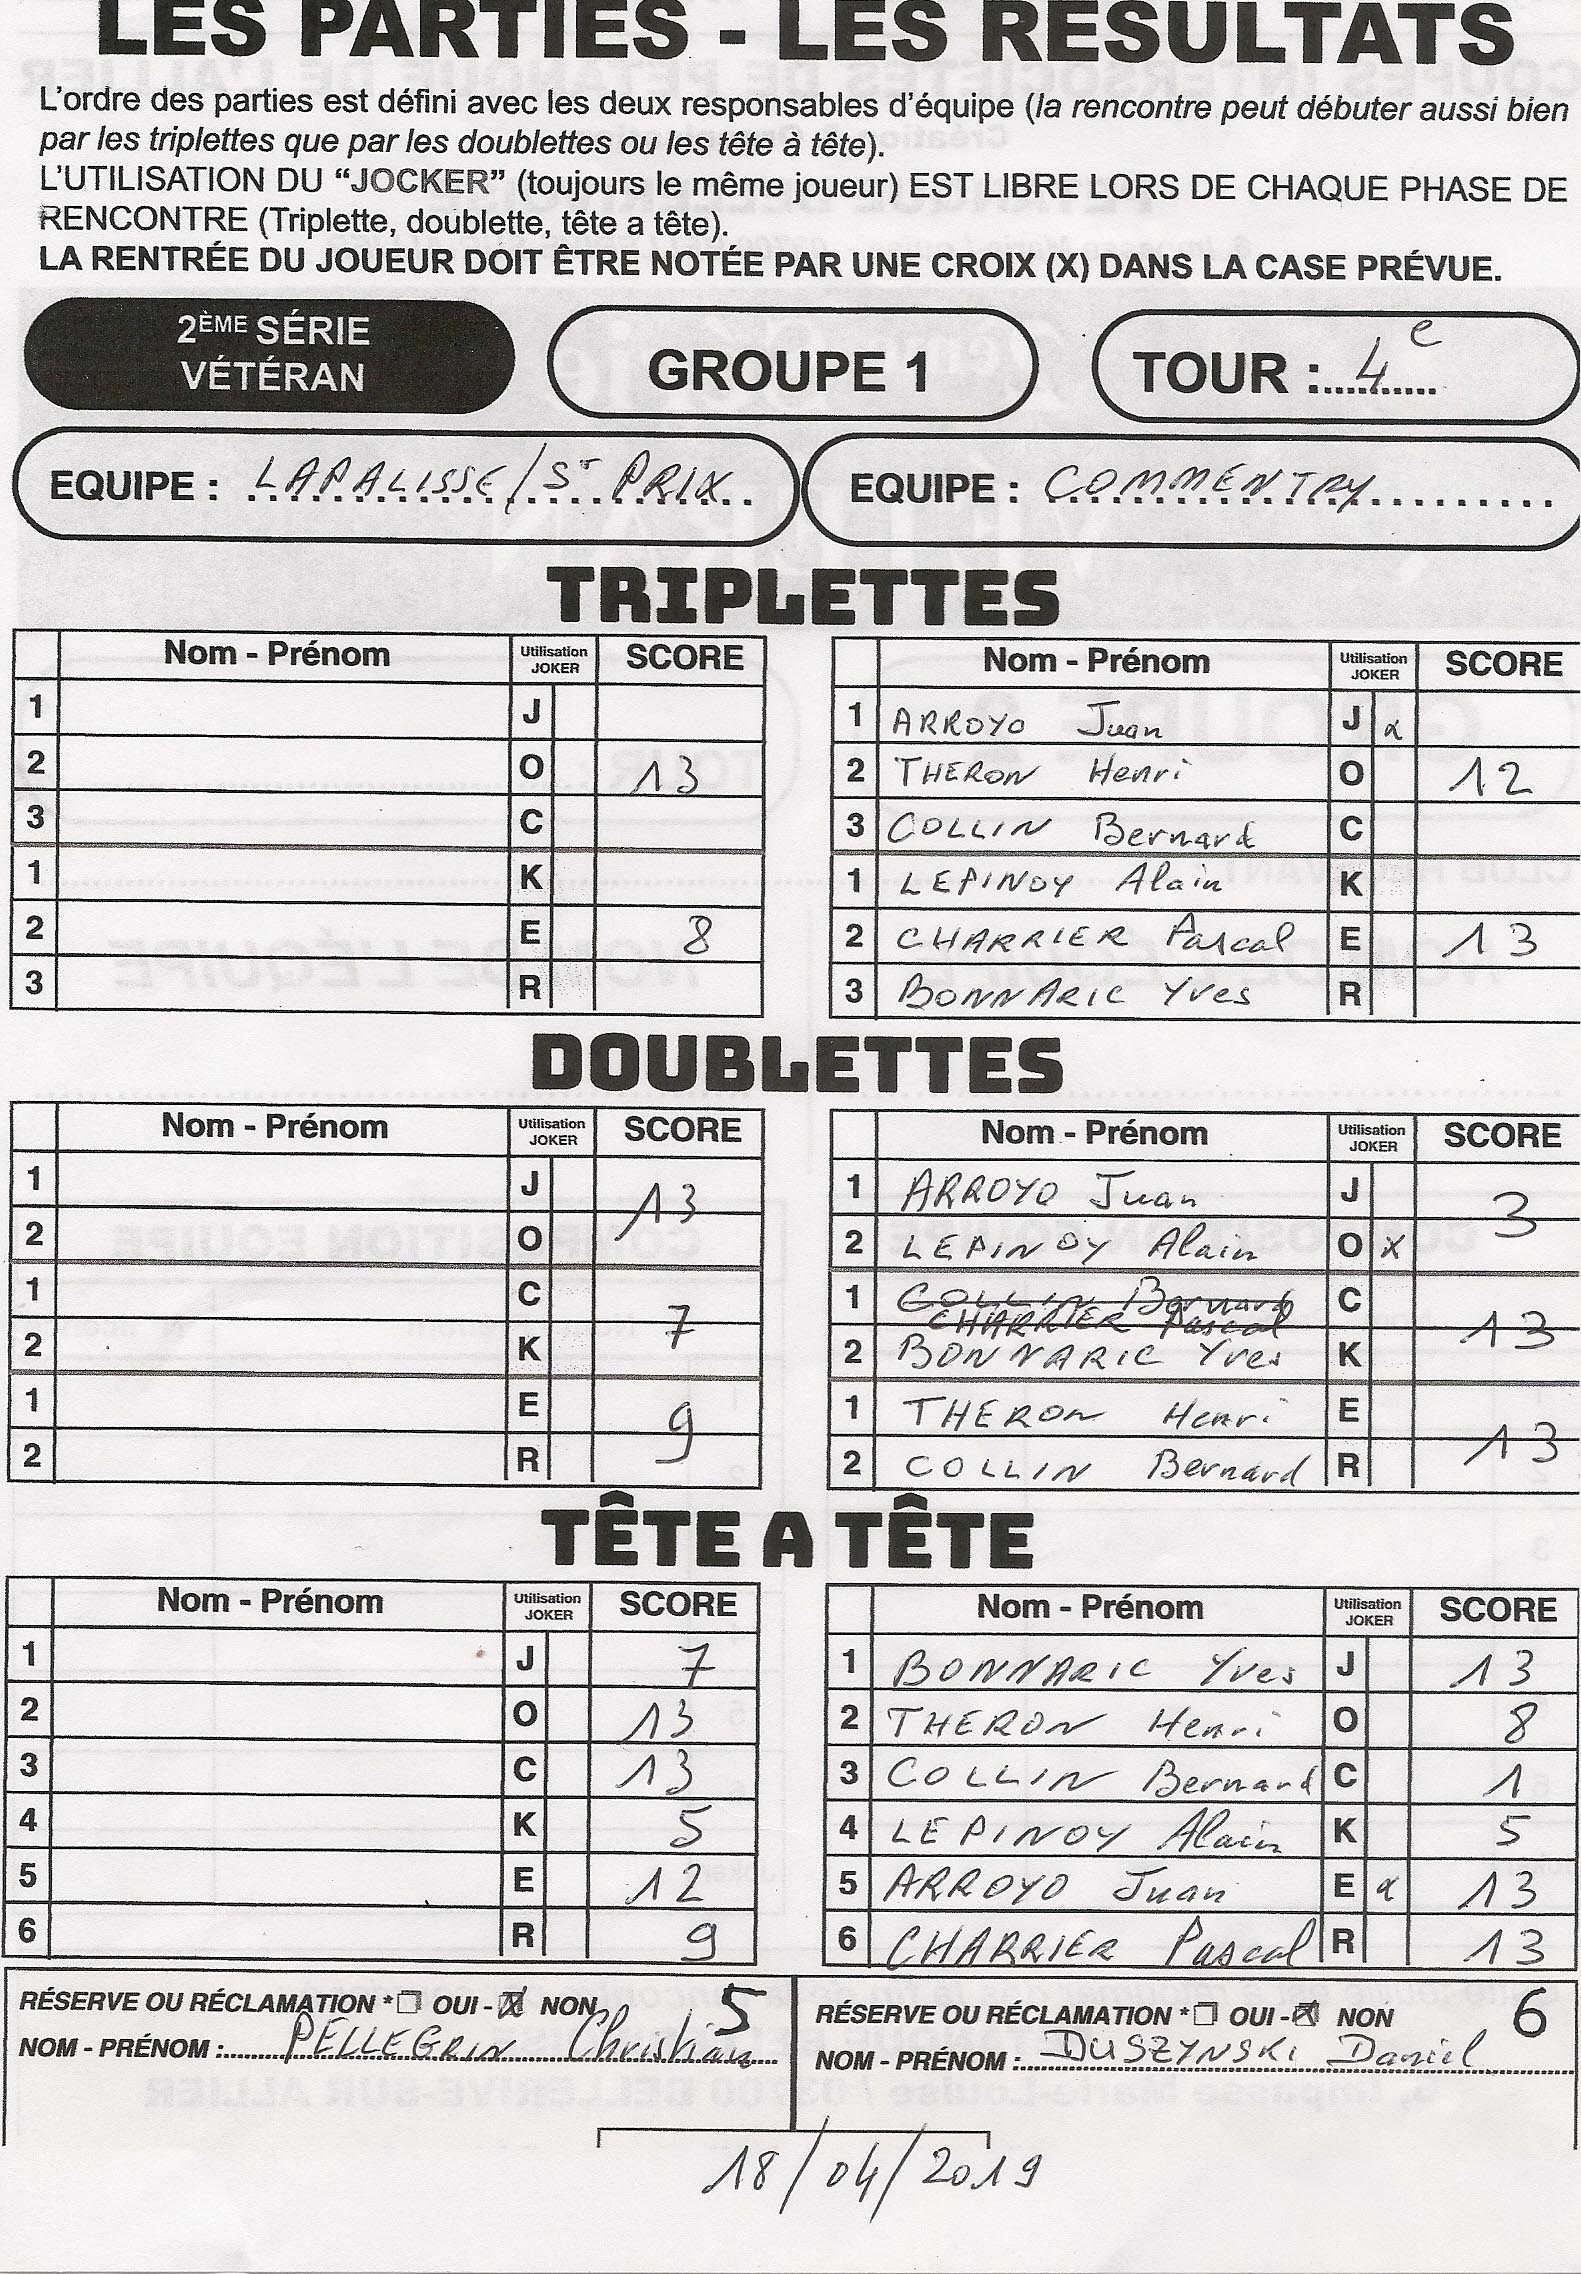 LES PARTIES - LES RESULTATS
L'ordre des parties est défini avec les deux responsables d'équipe (la rencontre peut débuter aussi bien
par les triplettes que par les doublettes ou les tête à tête).
L'UTILISATION DU “JOCKER” (toujours le même joueur) EST LIBRE LORS DE CHAQUE PHASE DE
RENCONTRE (Triplette, doublette, tête a tête).
LA RENTRÉE DU JOUEUR DOIT ÊTRE NOTÉE PAR UNE CROIX (X) DANS LA CASE PRÉVUE.
2ÈME SÉRIE
VÉTÉRAN
GROUPE 1
TOUR : 4e
EQUIPE : LAPALISSE / ST PRIX
EQUIPE : COMMENTRY
TRIPLETTES
Nom - Prénom Utilisation JOKER SCORE Nom - Prénom Utilisation JOKER SCORE
1 J 1 ARROYO Juan J x
2 O 13 2 THERON Henri O 12
3 C 3 COLLIN Bernard C
1 K 1 LEPINOY Alain K
2 E 8 2 CHARRIER Pascal E 13
3 R 3 BONNARIC Yves R
DOUBLETTES
Nom - Prénom Utilisation JOKER SCORE Nom - Prénom Utilisation JOKER SCORE
1 J 13 1 ARROYO Juan J 3
2 O 2 LEPINOY Alain O x
1 C 7 1 COLLIN Bernard C 13
CHARRIER Pascal
2 K 2 BONNARIC Yves K
1 E 9 1 THERON Henri E 13
2 R 2 COLLIN Bernard R
TÊTE A TÊTE
Nom - Prénom Utilisation JOKER SCORE Nom - Prénom Utilisation JOKER SCORE
1 J 7 1 BONNARIC Yves J 13
2 O 13 2 THERON Henri O 8
3 C 13 3 COLLIN Bernard C 1
4 K 5 4 LEPINOY Alain K 5
5 E 12 5 ARROYO Juan E x 13
6 R 9 6 CHARRIER Pascal R 13
RÉSERVE OU RÉCLAMATION * OUI - NON 5
NOM - PRÉNOM : PELLEGRIN Christian
RÉSERVE OU RÉCLAMATION * OUI - NON 6
NOM - PRÉNOM : DUSZYNSKI Daniel
18/04/2019